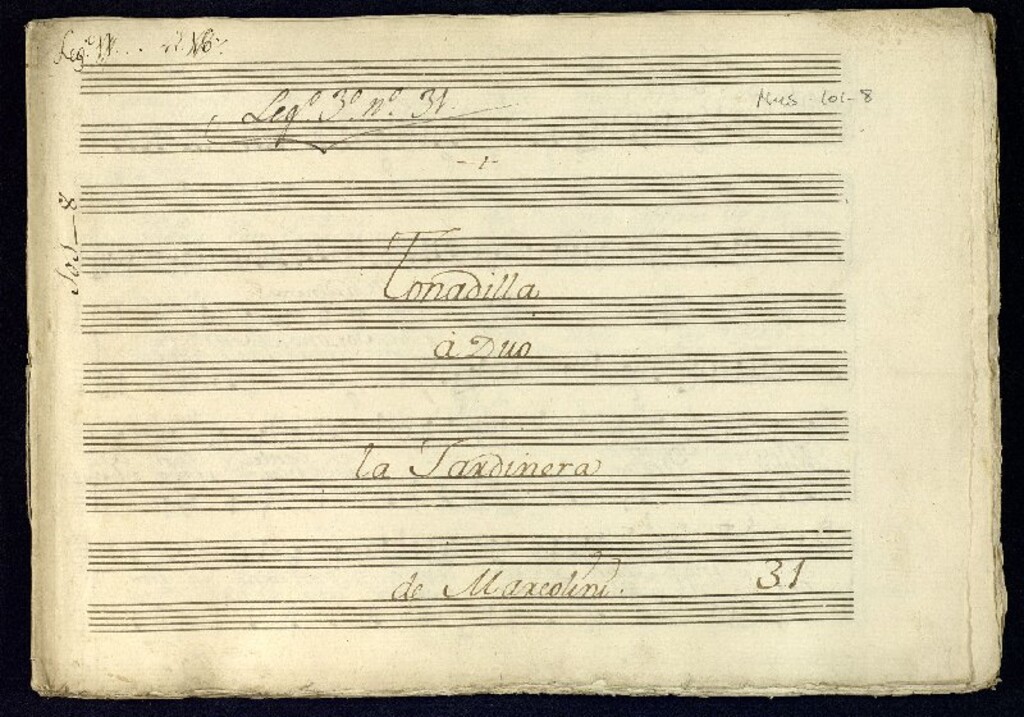 Leg.º 3.º n.º 31.
Mus 101-8
- 1 -
101-8
Tonadilla
à Duo
la Jardinera
de Marcolini.
31